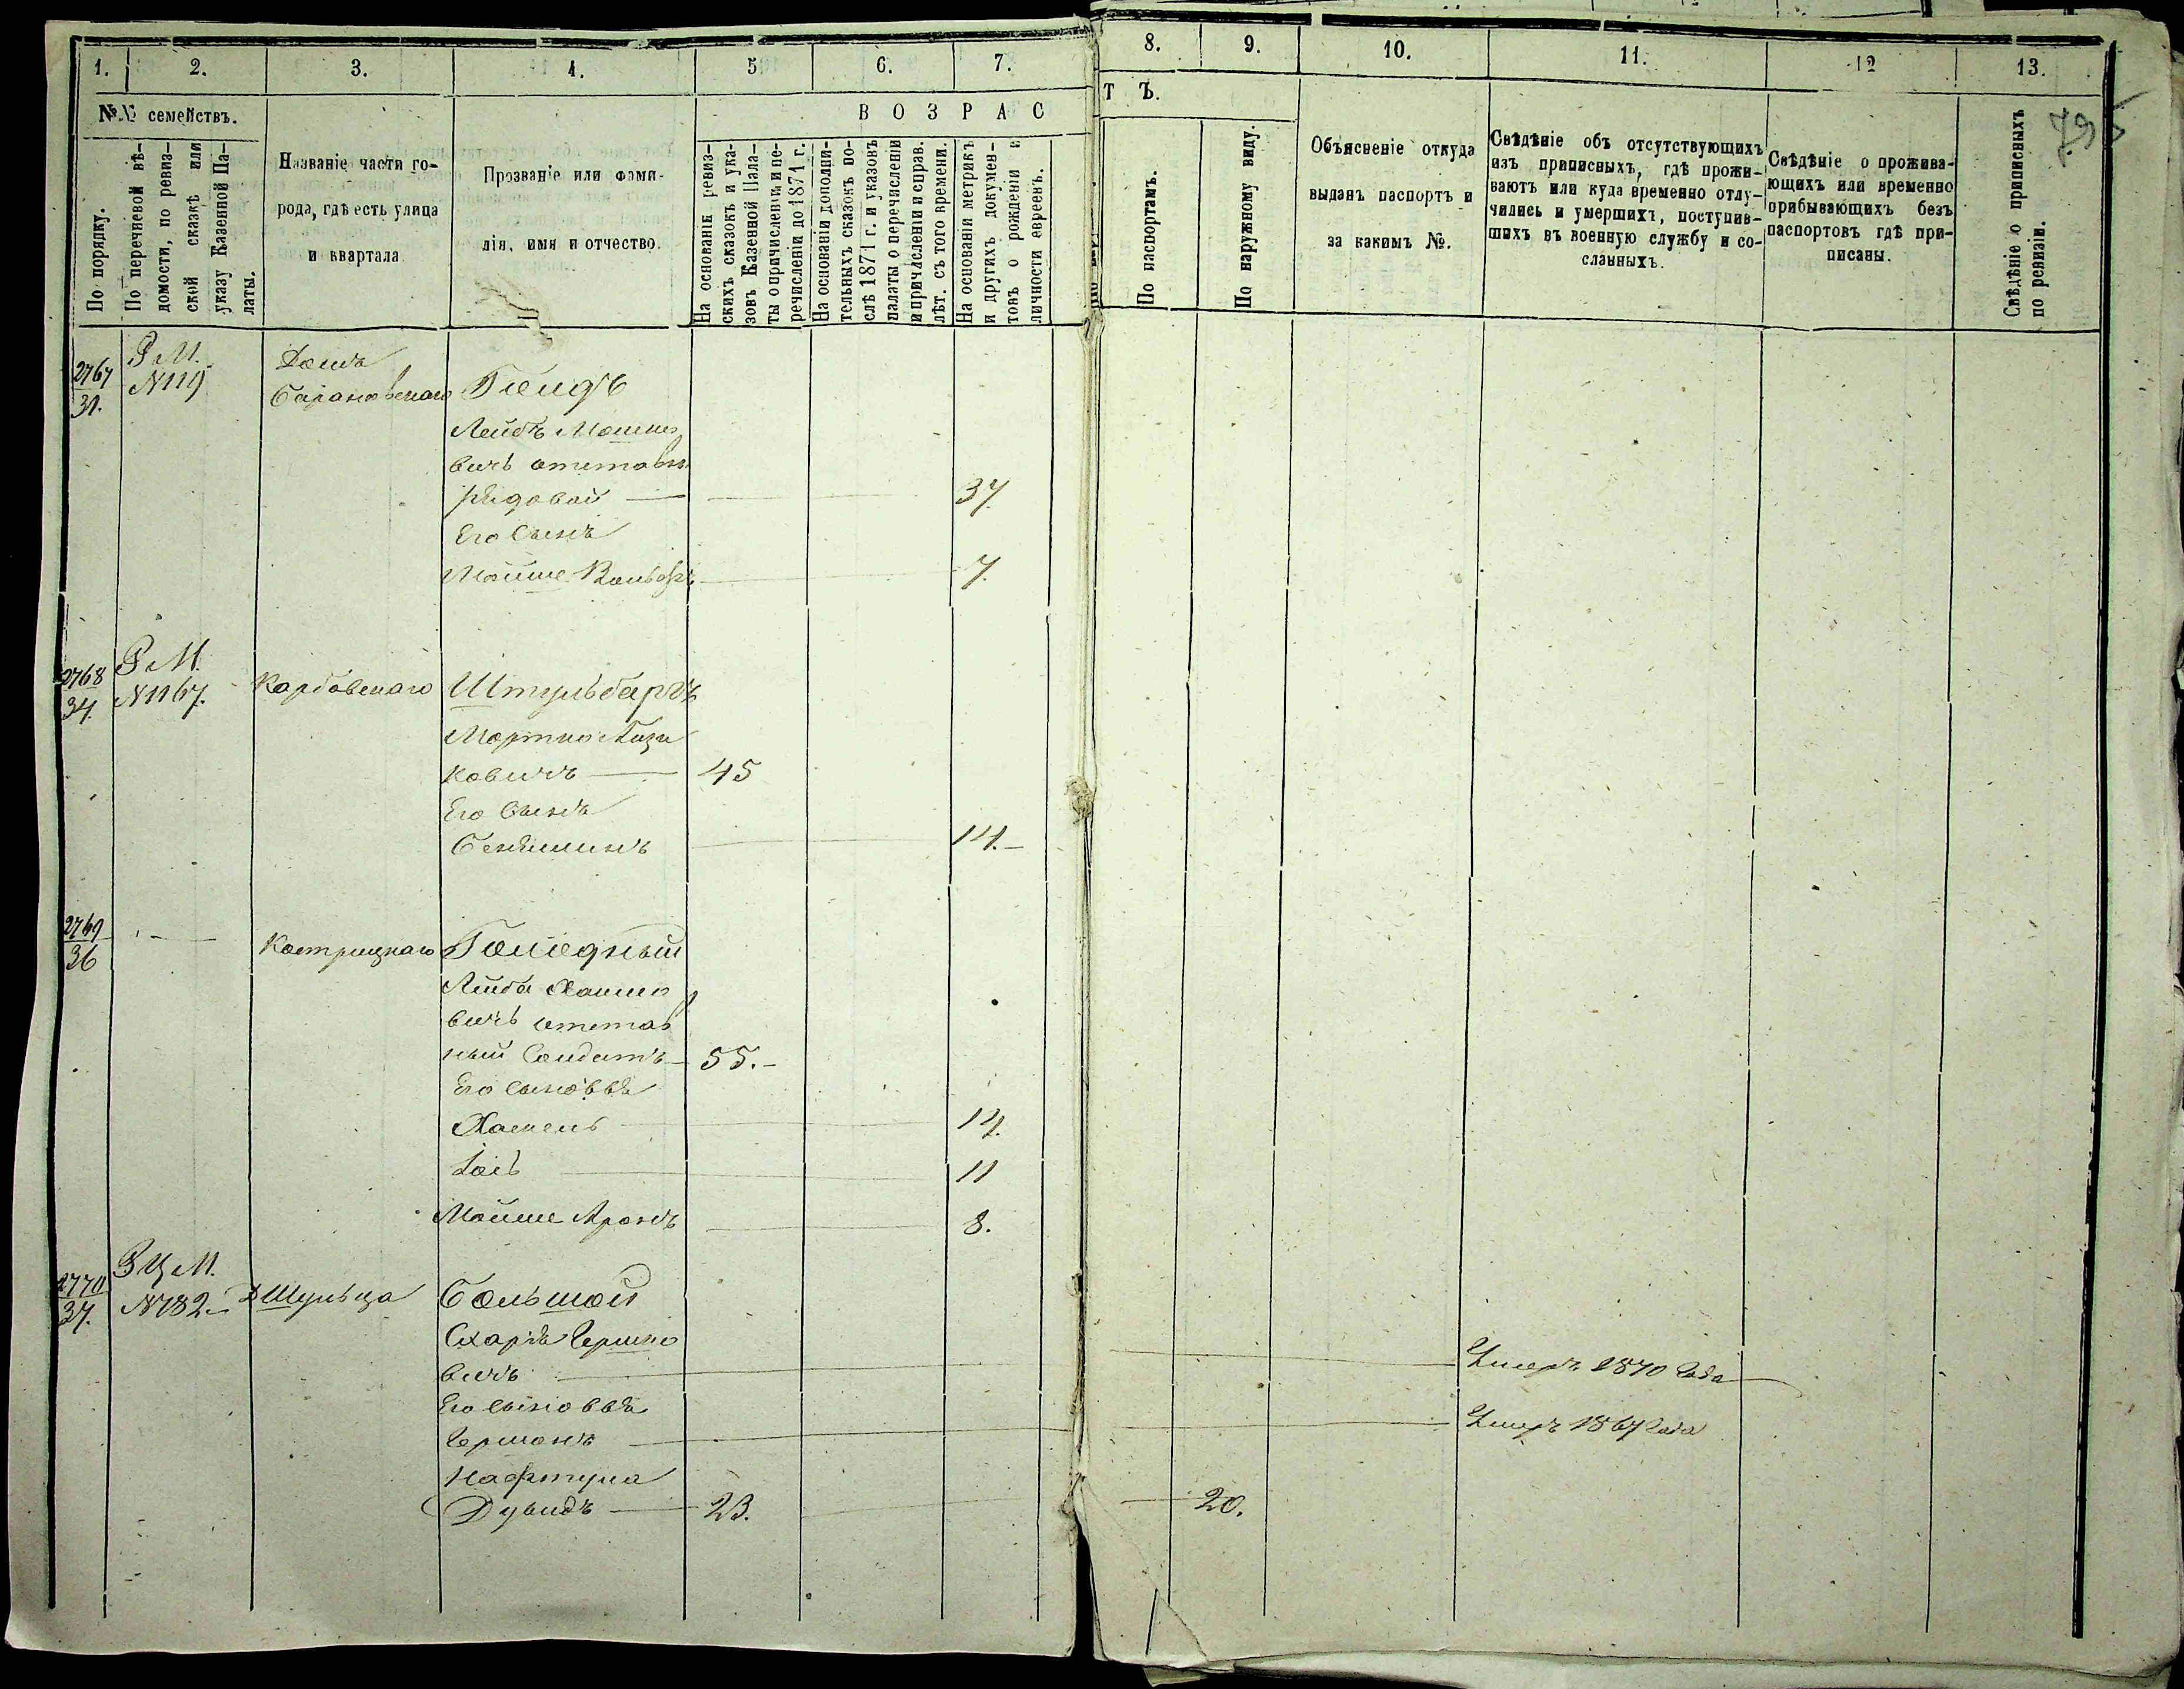 1. 2. 3. 4. 5 6. 7. 8. 9. 10. 11. 12 13.
795
№№ семействъ.
По порядку.
По перечневой вѣ-
домости, по ревиз-
ской сказкѣ или
указу Казенной Па-
латы.
Названіе части го-
рода, гдѣ есть улица
и квартала
Прозваніе или фами-
лія, имя и отчество.
ВОЗРАСТЪ.
На основаніи ревиз-
скихъ сказокъ и ука-
зовъ Казенной Пала-
ты о причисленіи и пе-
речисленіи до 1871 г.
На основаніи дополни-
тельныхъ сказокъ по-
слѣ 1871 г. и указовъ
палаты о перечисленіи
и причисленіи и справ.
лѣт. съ того времени.
На основаніи метрикъ
и другихъ докумен-
товъ о рожденіи и
личности евреевъ.
По паспортамъ.
По наружному виду.
Объясненіе откуда
выданъ паспортъ и
за какимъ №.
Свѣдѣніе объ отсутствующихъ
изъ приписныхъ, гдѣ прожи-
ваютъ или куда временно отлу-
чились и умершихъ, поступив-
шихъ въ военную службу и со-
сланныхъ.
Свѣдѣніе о прожива-
ющихъ или временно
прибывающихъ безъ
паспортовъ гдѣ при-
писаны.
Свѣдѣніе о приписныхъ
по ревизіи.
2767
31.
Р М.
N 119
Домъ
Барановскаго
Гольдъ
Лейбъ Мошко
вичъ отставн
рядовой — 37
Его Сынъ
Мойше Вольфъ — 7.
2768
34.
Р М.
N 1167.
Карбовскаго
Штульбаргъ
Мортко Айзи
ковичъ — 45
Его Сынъ
Беньяминъ 14. –
2769
36
Кострицкаго
Голодный
Лейба Хаимо
вичъ отстав
ный Солдатъ — 55. –
Его сыновья
Хаскель 14.
Іось 11
Мойше Аронъ 8.
2770
37.
Р Ц М.
N 182 –
Д Шульца
Большой
Сахаръ Гершко
вичъ — Умеръ 1870 года
Его сыновья
Гершонъ — Умеръ 1867 года
Нафтула
Дувидъ — 23. — 20.